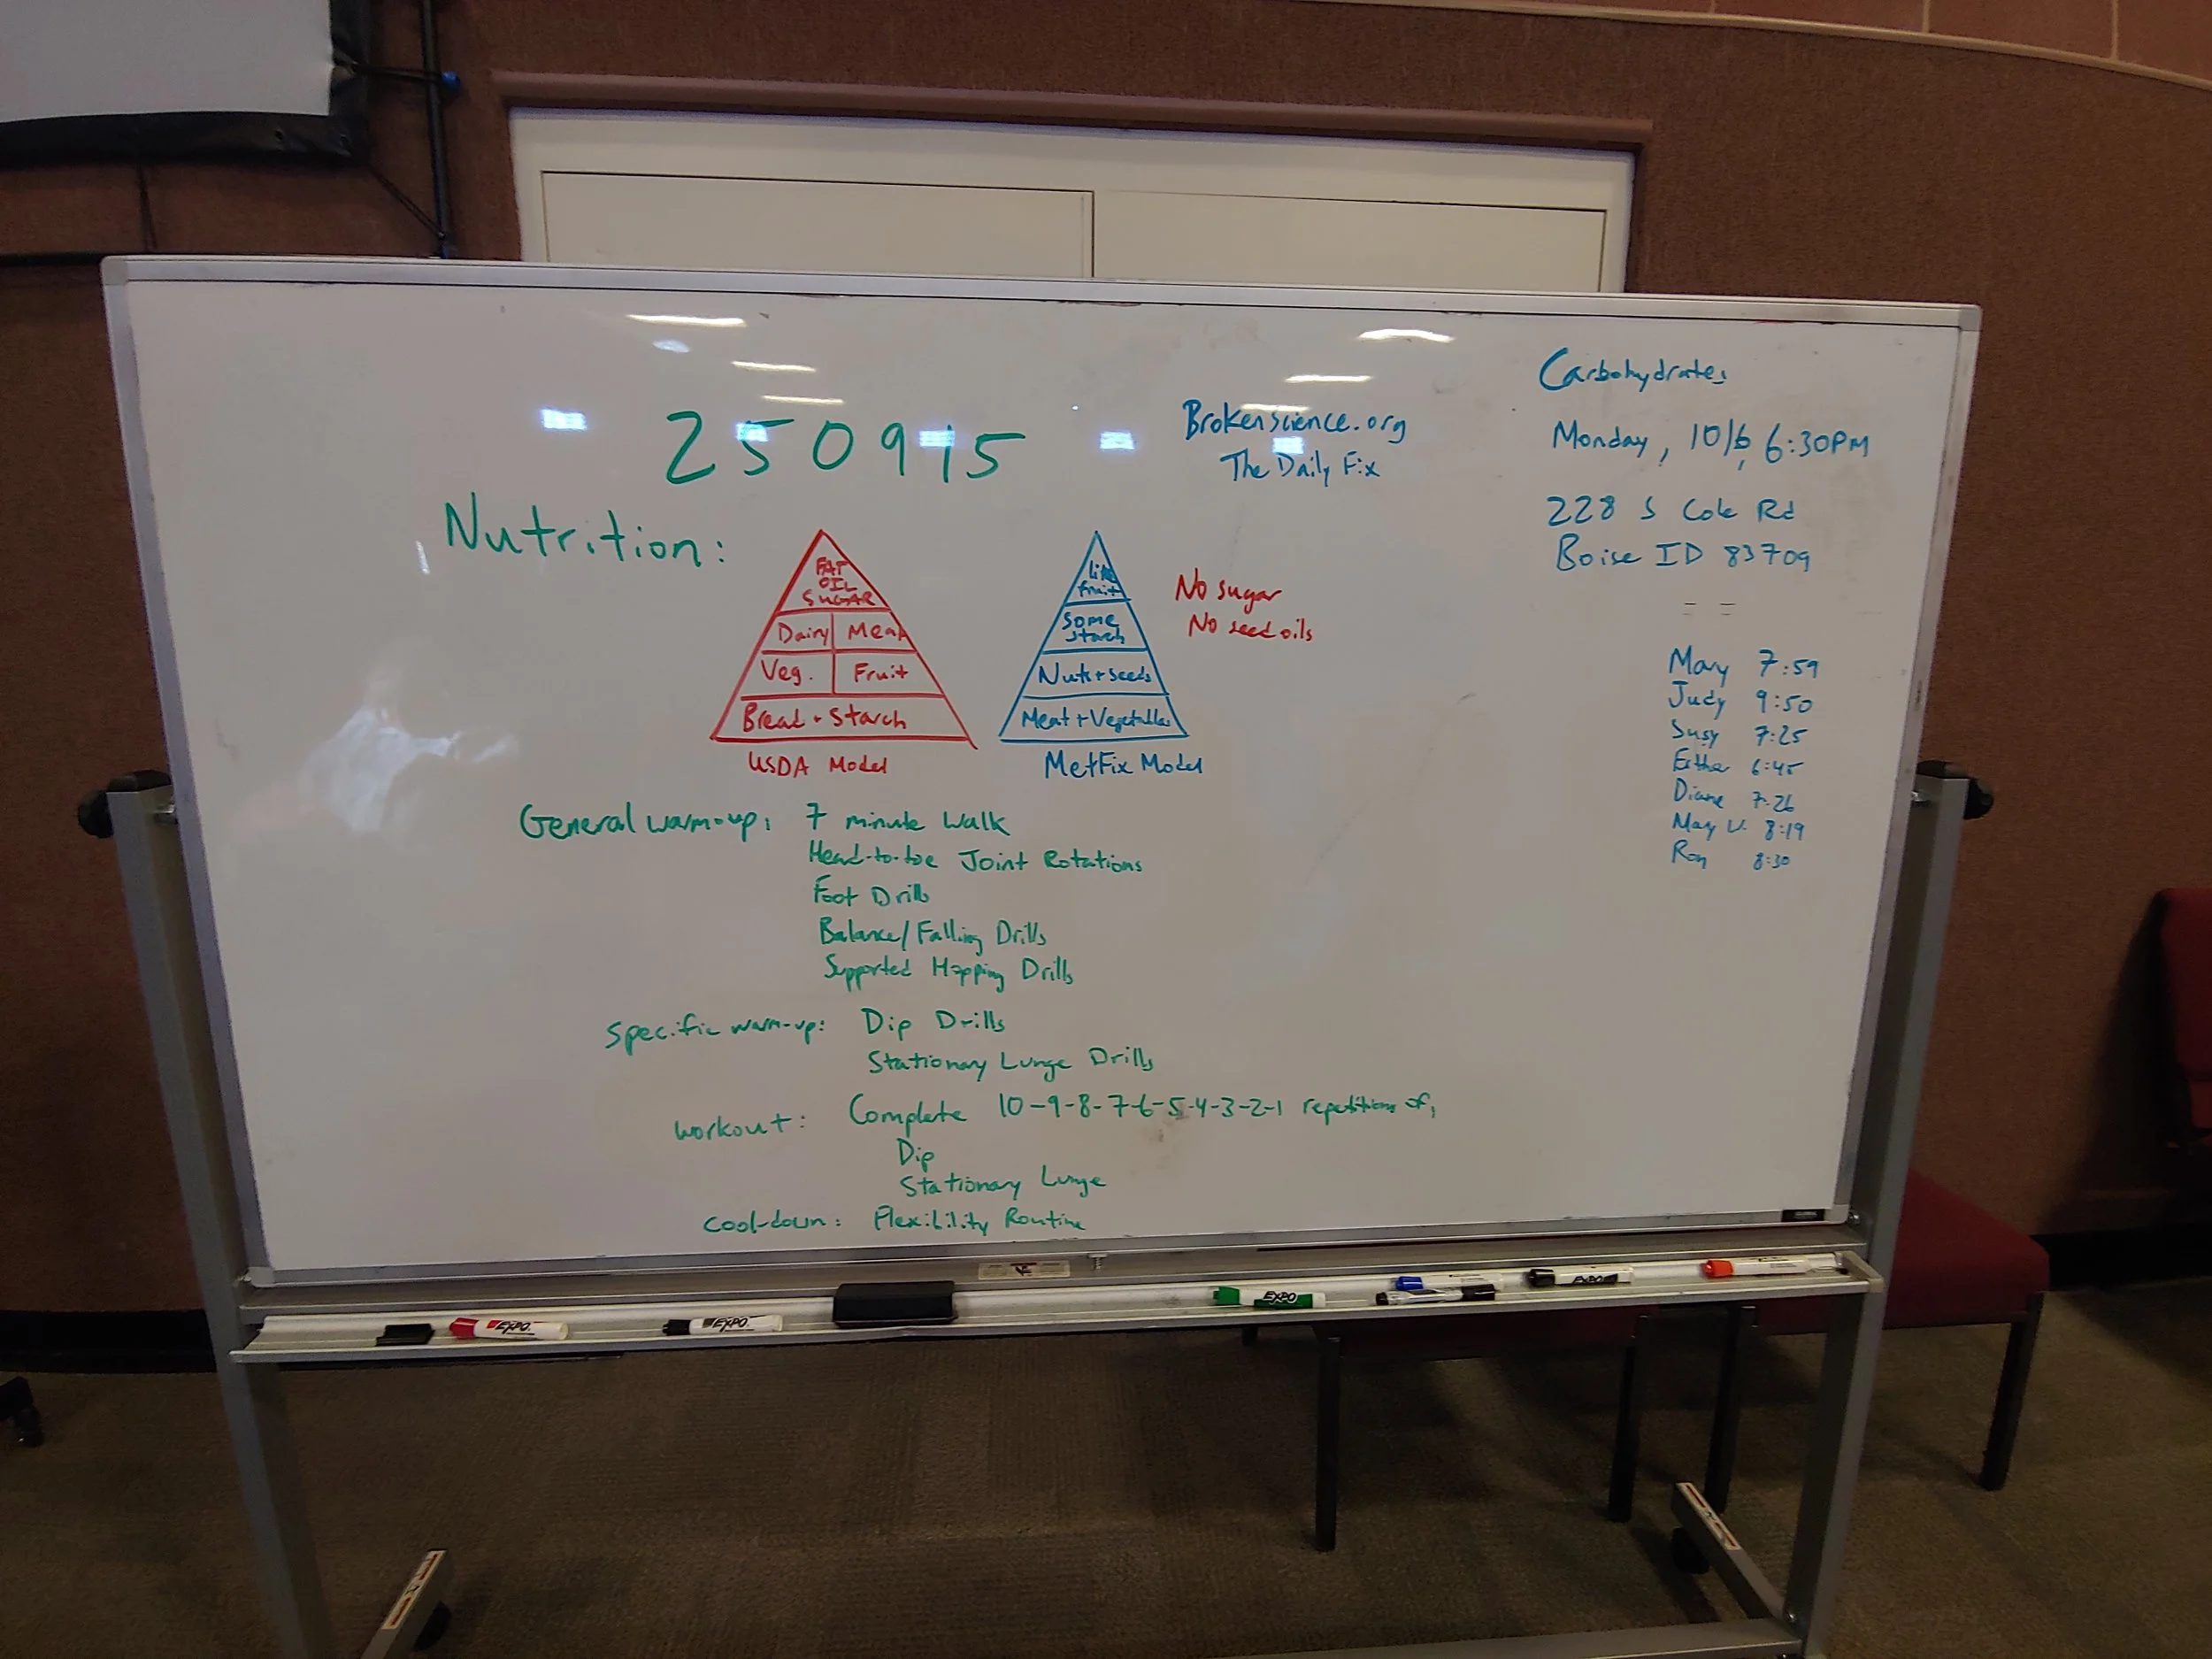 250915
BrokenScience.org
The Daily Fix
Carbohydrates
Monday, 10/6, 6:30PM
228 S Cole Rd
Boise ID 83709
Nutrition:
FAT
OIL
SUGAR
Dairy Meat
Veg. Fruit
Bread + Starch
USDA Model
little
fruit
Some
starch
Nuts + seeds
Meat + Vegetables
MetFix Model
No sugar
No seed oils
Mary 7:59
Judy 9:50
Susy 7:25
6:45
Diane 7:26
Mary V. 8:19
Ron 8:30
General warm-up: 7 minute Walk
Head-to-toe Joint Rotations
Foot Drills
Balance/Falling Drills
Supported Hopping Drills
Specific warm-up: Dip Drills
Stationary Lunge Drills
Workout: Complete 10-9-8-7-6-5-4-3-2-1 repetitions of:
Dip
Stationary Lunge
Cool-down: Flexibility Routine
GLOBAL
EXPO
EXPO
EXPO
EXPO